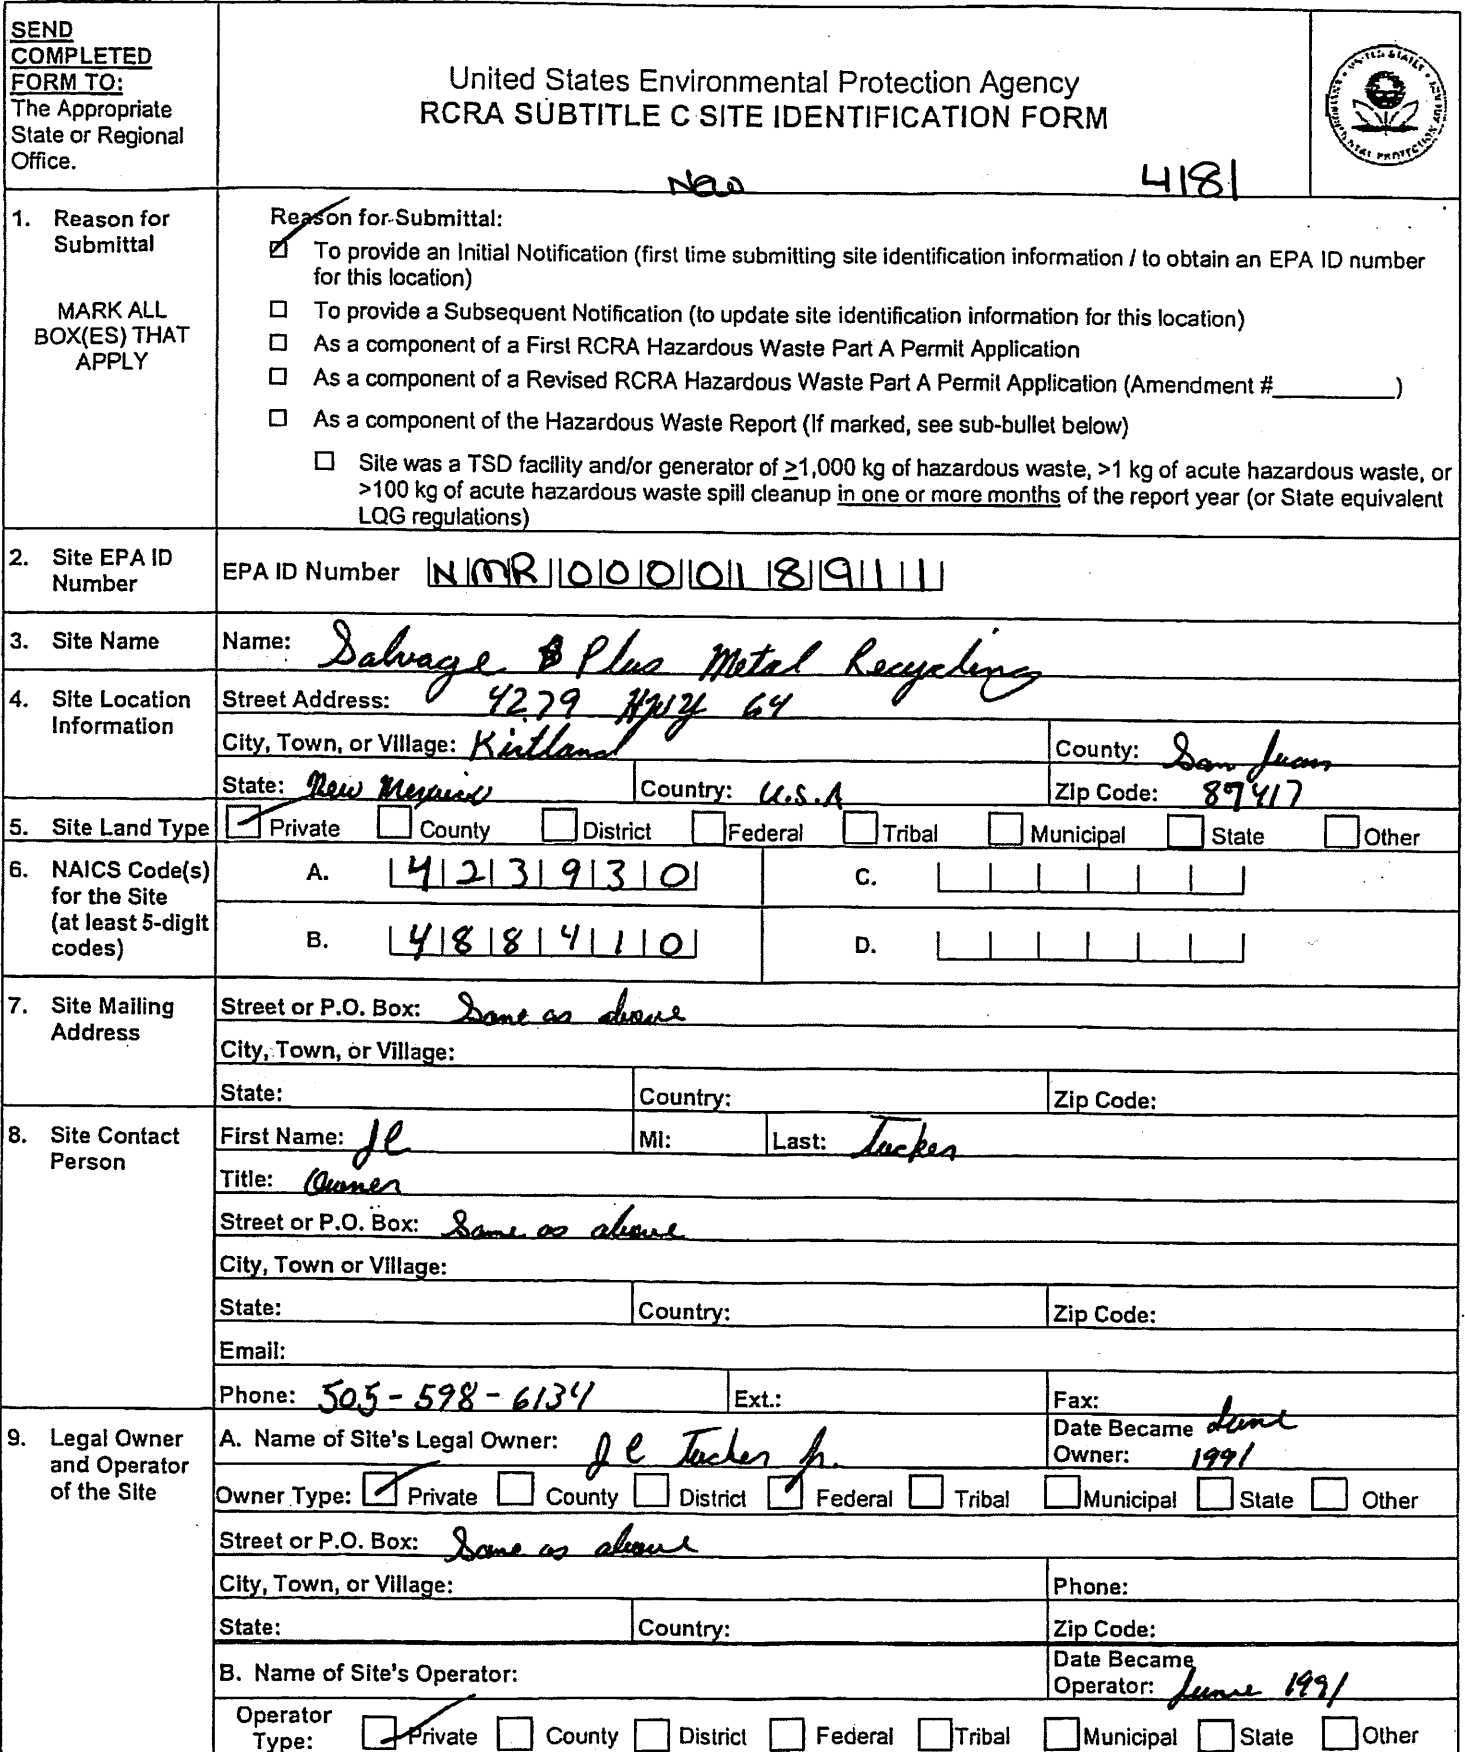 SEND
COMPLETED
FORM TO:
The Appropriate
State or Regional
Office.
United States Environmental Protection Agency
RCRA SUBTITLE C SITE IDENTIFICATION FORM
UNITED STATES ENVIRONMENTAL PROTECTION AGENCY
New 4181
1. Reason for
Submittal
MARK ALL
BOX(ES) THAT
APPLY
Reason for Submittal:
☑ To provide an Initial Notification (first time submitting site identification information / to obtain an EPA ID number
for this location)
☐ To provide a Subsequent Notification (to update site identification information for this location)
☐ As a component of a First RCRA Hazardous Waste Part A Permit Application
☐ As a component of a Revised RCRA Hazardous Waste Part A Permit Application (Amendment #_________)
☐ As a component of the Hazardous Waste Report (If marked, see sub-bullet below)
☐ Site was a TSD facility and/or generator of ≥1,000 kg of hazardous waste, >1 kg of acute hazardous waste, or
>100 kg of acute hazardous waste spill cleanup in one or more months of the report year (or State equivalent
LQG regulations)
2. Site EPA ID
Number
EPA ID Number NMR000018911
3. Site Name
Name: Salvage Plus Metal Recycling
4. Site Location
Information
Street Address: 4279 Hwy 64
City, Town, or Village: Kirtland County: San Juan
State: New Mexico Country: U.S.A Zip Code: 87417
5. Site Land Type ☑ Private ☐ County ☐ District ☐ Federal ☐ Tribal ☐ Municipal ☐ State ☐ Other
6. NAICS Code(s)
for the Site
(at least 5-digit
codes)
A. 423930 C.
B. 488410 D.
7. Site Mailing
Address
Street or P.O. Box: Same as above
City, Town, or Village:
State: Country: Zip Code:
8. Site Contact
Person
First Name: JC MI: Last: Tucker
Title: Owner
Street or P.O. Box: Same as above
City, Town or Village:
State: Country: Zip Code:
Email:
Phone: 505-598-6134 Ext.: Fax:
9. Legal Owner
and Operator
of the Site
A. Name of Site's Legal Owner: JC Tucker Jr. Date Became Owner: June 1991
Owner Type: ☑ Private ☐ County ☐ District ☑ Federal ☐ Tribal ☐ Municipal ☐ State ☐ Other
Street or P.O. Box: Same as above
City, Town, or Village: Phone:
State: Country: Zip Code:
B. Name of Site's Operator: Date Became
Operator: June 1991
Operator
Type: ☑ Private ☐ County ☐ District ☐ Federal ☐ Tribal ☐ Municipal ☐ State ☐ Other